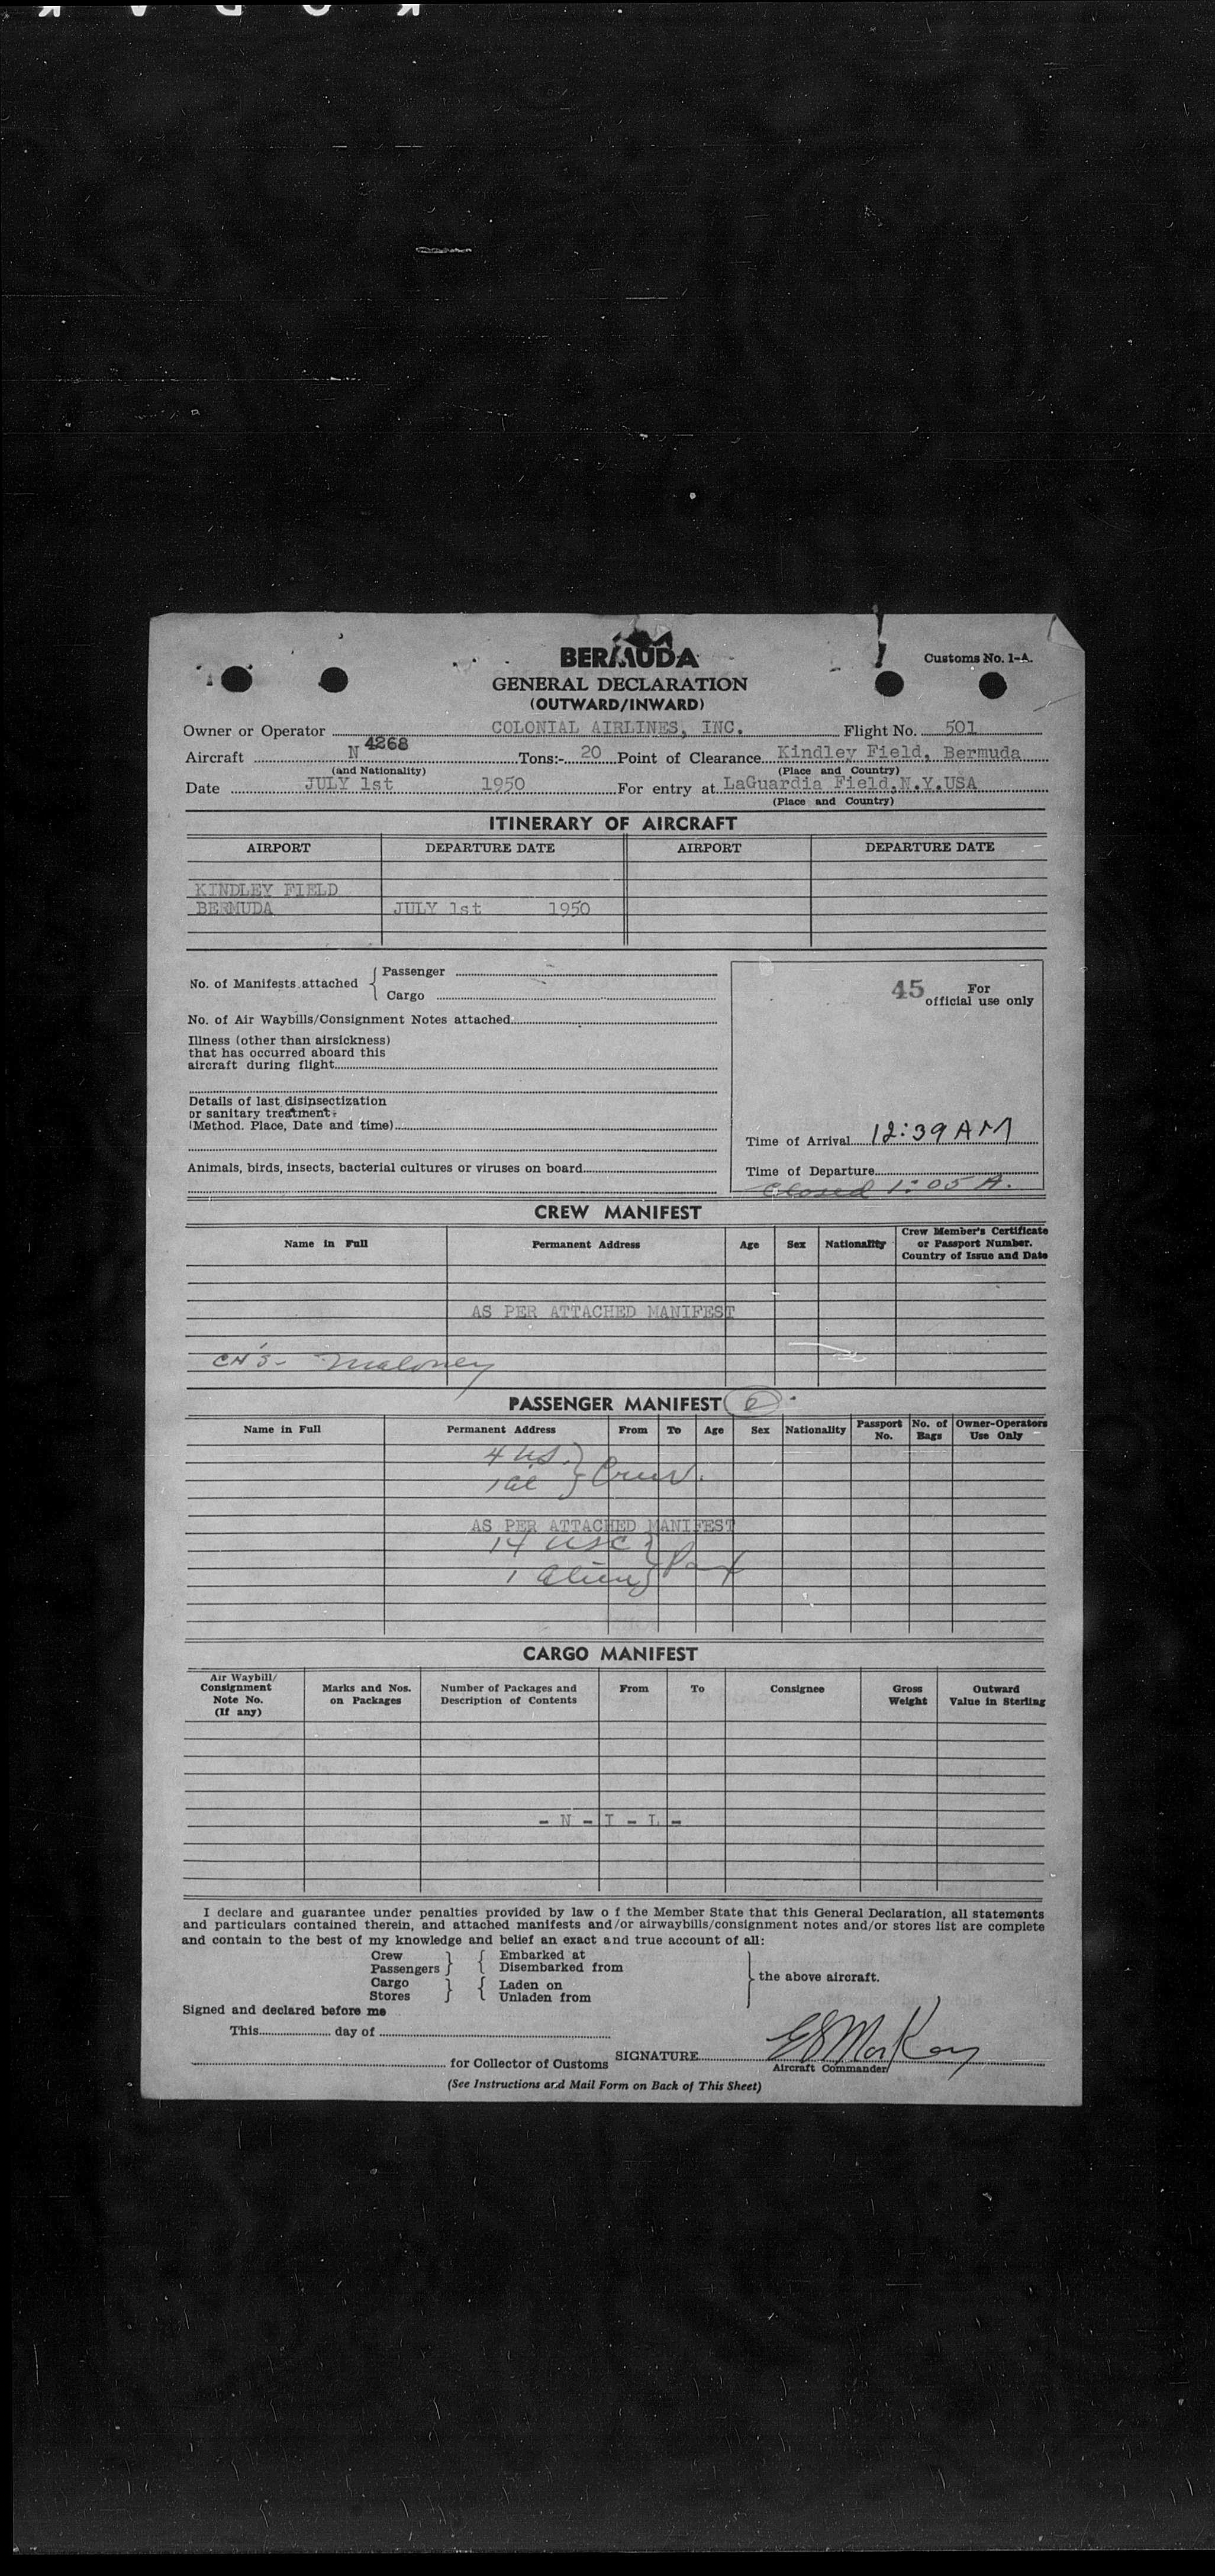 BERMUDA
Customs No. 1-A.
GENERAL DECLARATION
(OUTWARD/INWARD)
Owner or Operator COLONIAL AIRLINES, INC. Flight No. 501
Aircraft N 4268 Tons:- 20 Point of Clearance Kindley Field, Bermuda
(and Nationality) (Place and Country)
Date JULY 1st 1950 For entry at LaGuardia Field,N.Y.USA
(Place and Country)
ITINERARY OF AIRCRAFT
AIRPORT DEPARTURE DATE AIRPORT DEPARTURE DATE
KINDLEY FIELD
BERMUDA JULY 1st 1950
No. of Manifests attached { Passenger
Cargo
45 For
official use only
No. of Air Waybills/Consignment Notes attached
Illness (other than airsickness)
that has occurred aboard this
aircraft during flight
Details of last disinsectization
or sanitary treatment
(Method. Place, Date and time)
Time of Arrival 12:39 AM
Animals, birds, insects, bacterial cultures or viruses on board
Time of Departure
Closed 1:05 A.
CREW MANIFEST
Name in Full Permanent Address Age Sex Nationality Crew Member's Certificate
or Passport Number.
Country of Issue and Date
AS PER ATTACHED MANIFEST
Maloney
PASSENGER MANIFEST
Name in Full Permanent Address From To Age Sex Nationality Passport No. No. of Bags Owner-Operators Use Only
4 US. } Crew.
AS PER ATTACHED MANIFEST
14 USC } Pax
1 Alien
CARGO MANIFEST
Air Waybill/
Consignment
Note No.
(If any)
Marks and Nos.
on Packages
Number of Packages and
Description of Contents
From To Consignee Gross
Weight
Outward
Value in Sterling
- N - I - L -
I declare and guarantee under penalties provided by law o f the Member State that this General Declaration, all statements
and particulars contained therein, and attached manifests and/or airwaybills/consignment notes and/or stores list are complete
and contain to the best of my knowledge and belief an exact and true account of all:
Crew Embarked at
Passengers } { Disembarked from
Cargo Laden on
Stores } { Unladen from
} the above aircraft.
Signed and declared before me
This day of
for Collector of Customs SIGNATURE
Aircraft Commander
(See Instructions and Mail Form on Back of This Sheet)